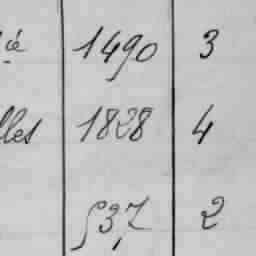 ié 1490 3
lles 1828 4
537 2